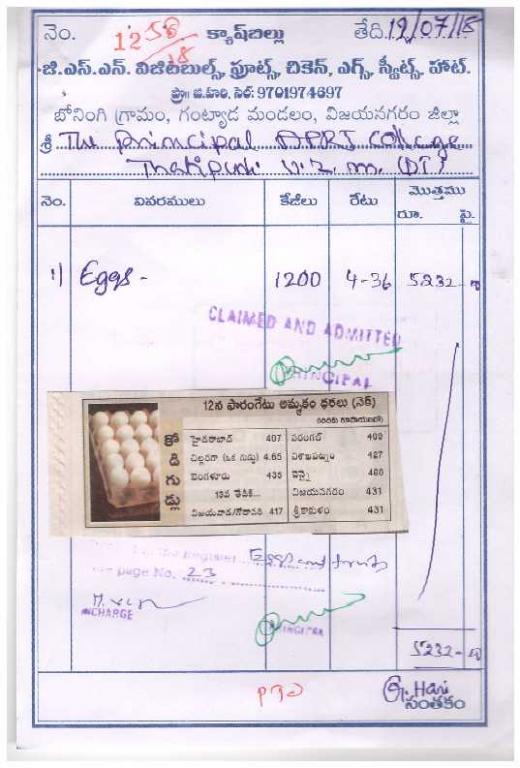 నెం. క్యాష్‌బిల్లు తేది. 19/07/18
జి.ఎస్.ఎన్. విజిటబుల్స్, ఫ్రూట్స్, చికెన్, ఎగ్స్, స్వీట్స్, హాట్.
ప్రొ॥ జి.హరి, సెల్: 9701974697
బోనంగి గ్రామం, గంట్యాడ మండలం, విజయనగరం జిల్లా
శ్రీ The Principal APRJ College
Thatipudi V.Z.M. (DT)
నెం. వివరములు కేజీలు రేటు మొత్తము
రూ. పై.
1) Eggs - 1200 4-36 5232-
CLAIMED AND ADMITTED
PRINCIPAL
12న ఫారంగేటు అమ్మకం ధరలు (నెక్)
కోడిగుడ్లు
హైదరాబాద్ 407 వరంగల్ 409
చిల్లరగా (ఒక గుడ్డు) 4.65 విశాఖపట్నం 427
బెంగళూరు 435 చెన్నై
13వ తేదీకి... విజయనగరం 431
విజయవాడ/గోదావరి 417 శ్రీకాకుళం 431
Register Eggs and fruits
page No. 23
INCHARGE PRINCIPAL
5232-
PTO G. Hari
సంతకం